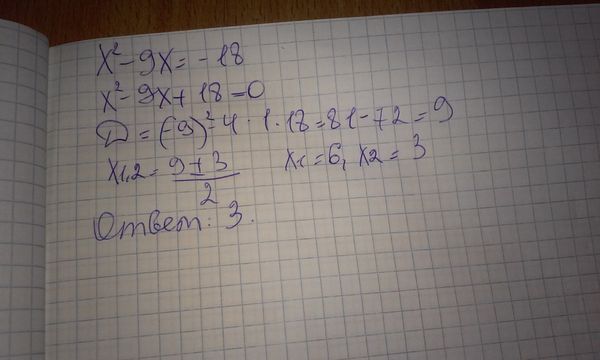 x² - 9x = -18
x² - 9x + 18 = 0
D = (-9)² - 4 · 1 · 18 = 81 - 72 = 9
x1,2 = (9 ± 3)/2 x1 = 6, x2 = 3
Ответ: 3.